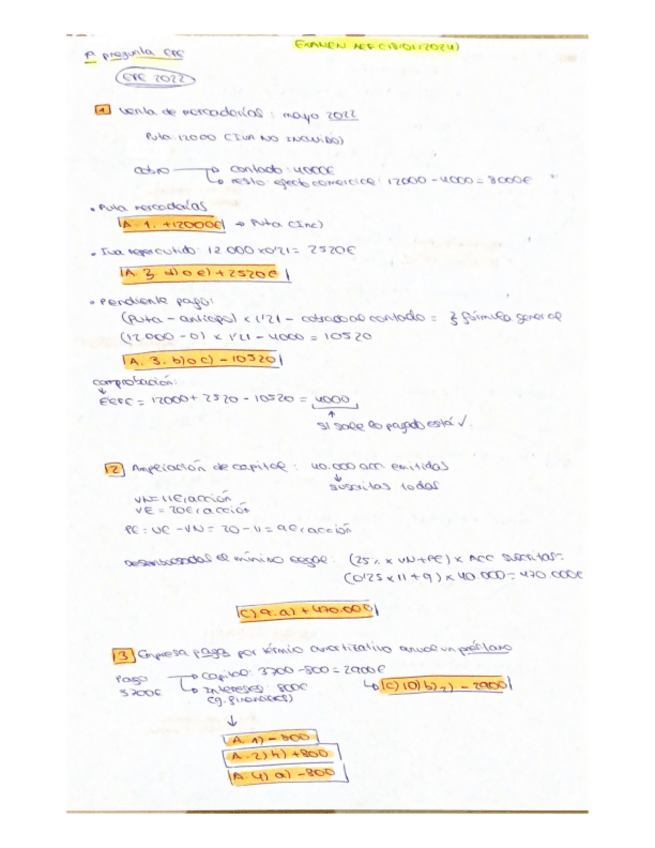 EXAMEN AEF (18/01/2024)
1ª pregunta EFE
EFE 2022
1 Venta de mercaderías: mayo 2022
Pvta: 12000 (IVA NO INCLUIDO)
cobro → contado: 4000€
↳ resto efecto comercial: 12000 - 4000 = 8000€
• Pvta mercaderías
A. 1. +12000€ → Pvta (Inc)
• Iva repercutido: 12 000 x 0'21 = 2520€
A. 3. d) o e) + 2520€
• Pendiente pago:
(Pvta - anticipo) x 1'21 - cobrado al contado = } fórmula general
(12 000 - 0) x 1'21 - 4000 = 10520
A. 3. b) o c) - 10520
comprobación:
↓
FEFE = 12000 + 2520 - 10520 = 4000
↑
si sale lo pagado está ✓.
2 Ampliación de capital: 40.000 acc. emitidas
↓
suscritas todas
VN = 11€/acción
VE = 20€/acción
PE = VE - VN = 20 - 11 = 9€/acción
Desembolsadas el mínimo legal: (25% x VN + PE) x ACC suscritas =
(0'25 x 11 + 9) x 40 000 = 470 000€
C) 9. a) + 470.000
3 Empresa paga por término amortizativo anual un préstamo
Pago 3700€ → Capital: 3700 - 800 = 2900€
↳ Intereses: 800€
(g. financieros)
↳ C) 10) b) 2) - 2900
↓
A. 1) - 800
A. 2) h) + 800
A. 4) a) - 800